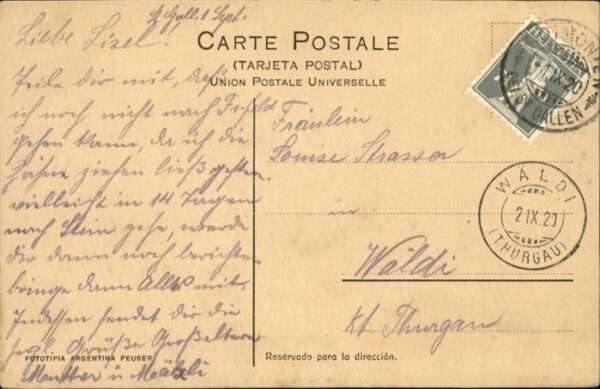 St. Gall. 1 Sept.
Liebe Lisel.
Teile dir mit, daß
ich noch nicht nach
gehen kann, da ich die
Zähne ziehen ließ gestern.
vielleicht in 14 Tagen
nach Stein gehe, werde
dir dann noch berichten
bringe dann Alles mit.
Indessen sendet dir die
herzl. Grüße Großeltern
Mutter u
CARTE POSTALE
(TARJETA POSTAL)
UNION POSTALE UNIVERSELLE
Fräulein
Louise Strasser
in
Wäldi
Kt Thurgau
HELVETIA
IX.20
GALLEN
WÄLDI
2.IX.20
(THURGAU)
FOTOTIPIA ARGENTINA PEUSER
Reservado para la dirección.